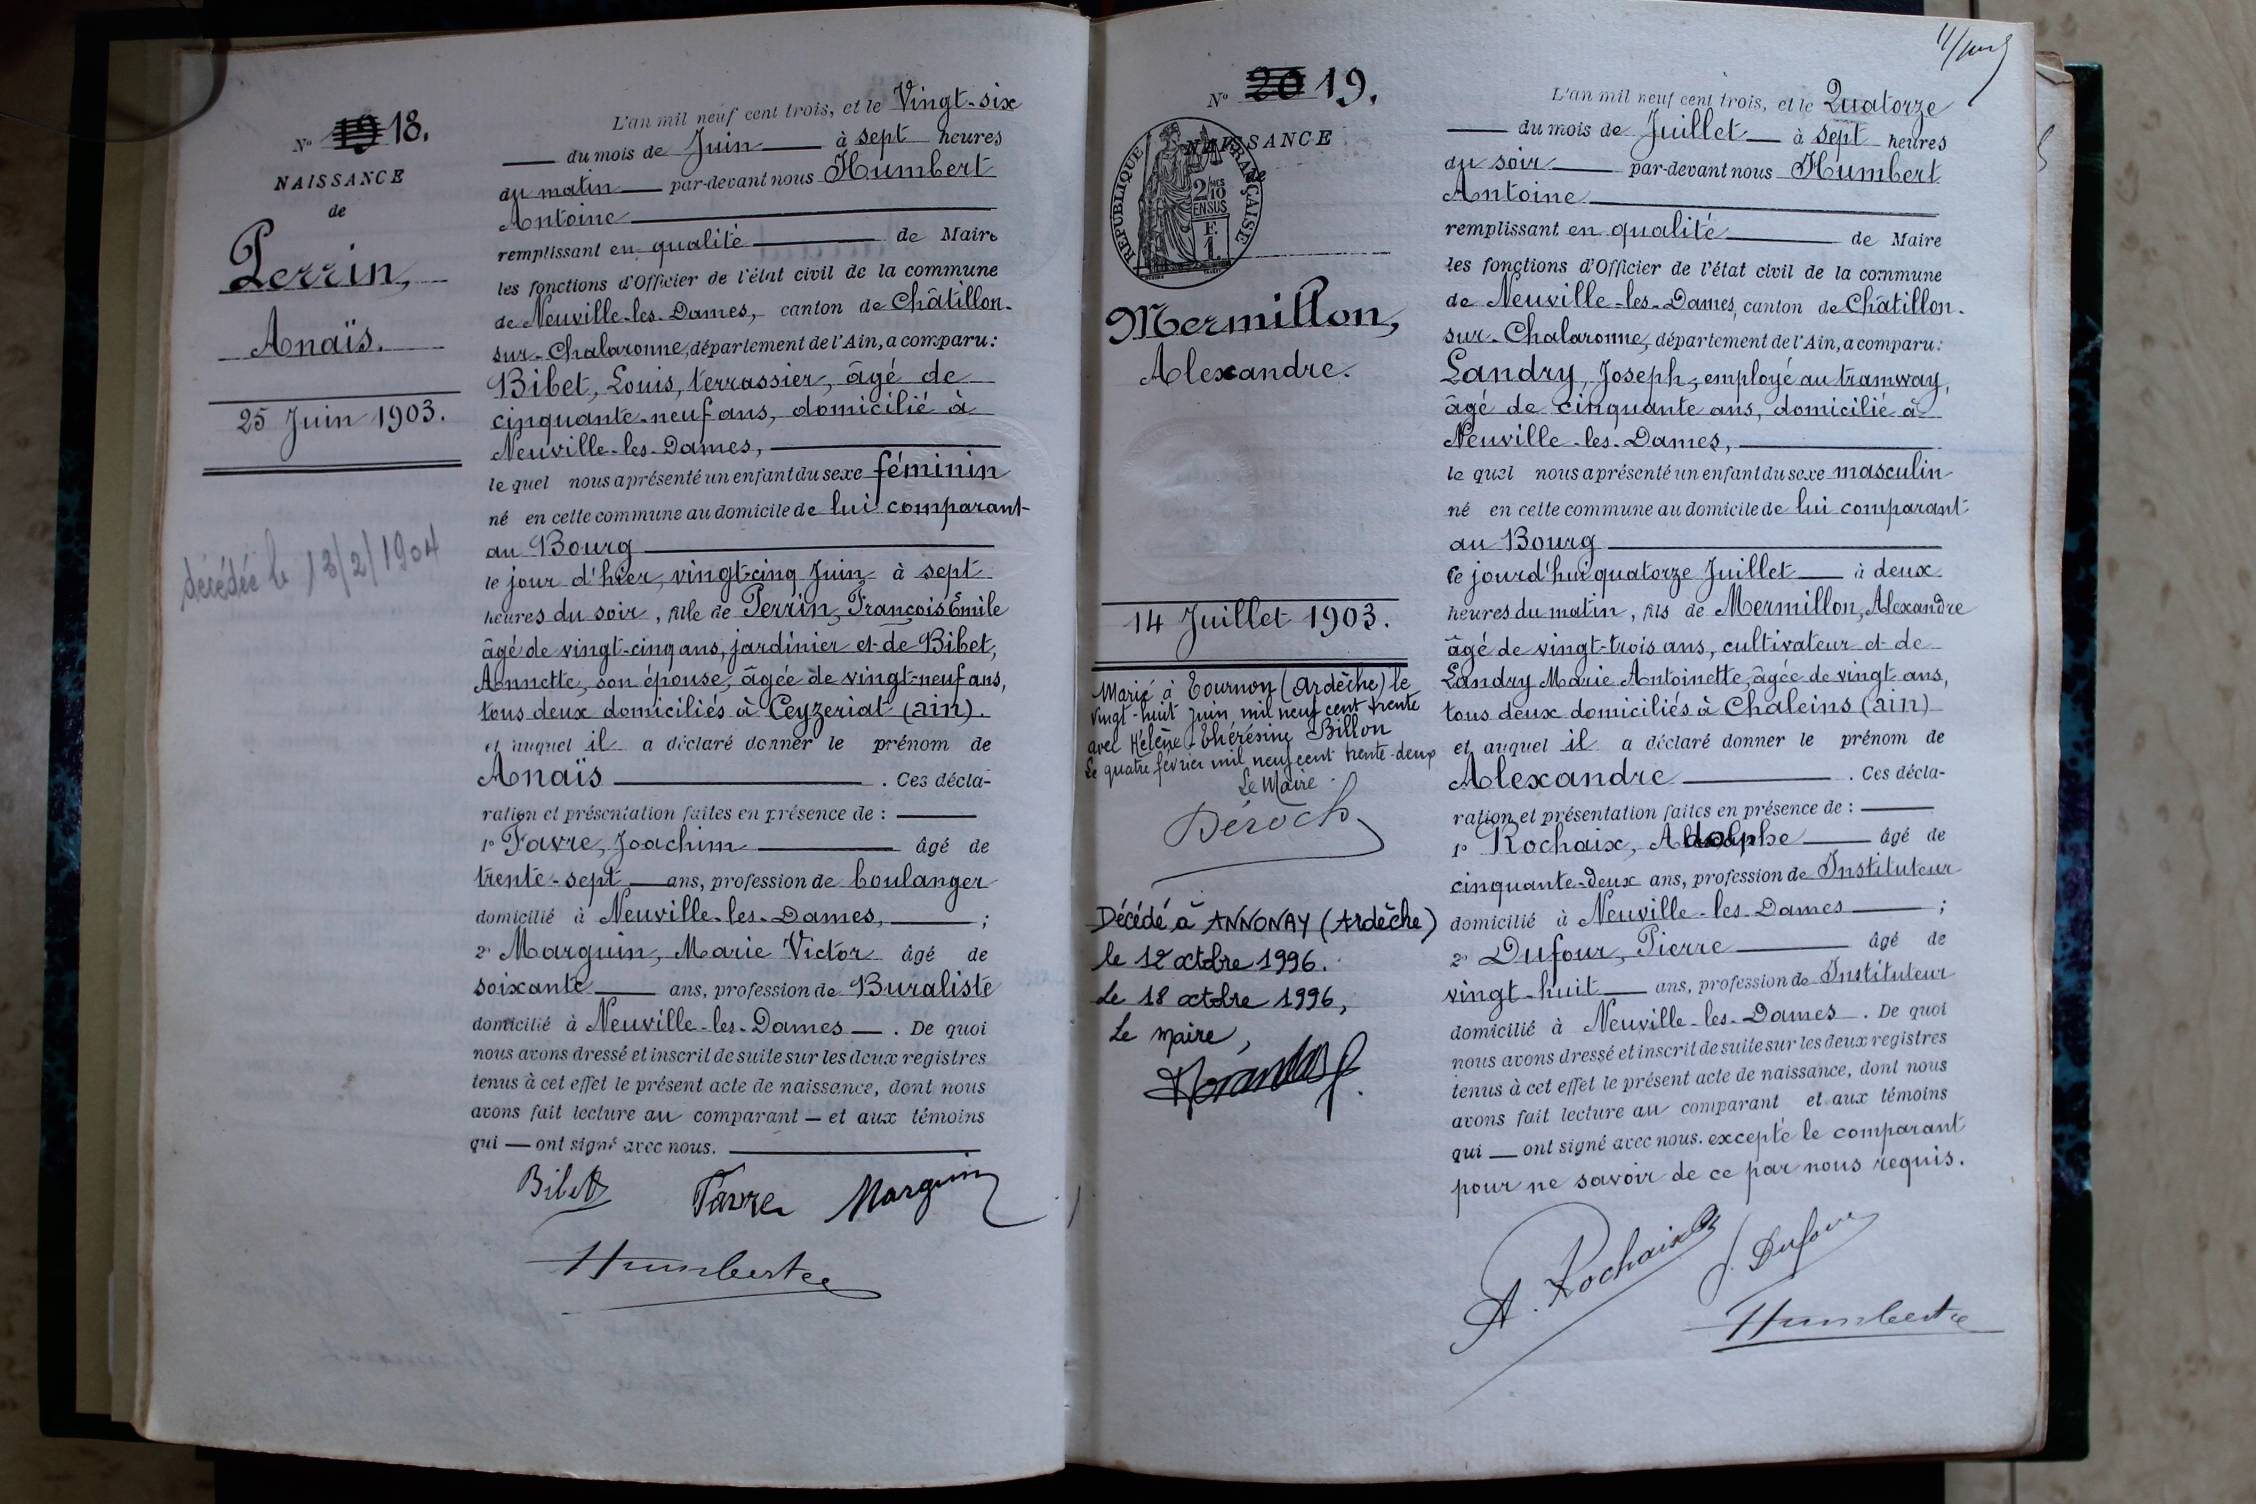 N° 19 18.
NAISSANCE
de
Perrin,
Anaïs.
25 Juin 1903.
décédée le 13/2/1904
L'an mil neuf cent trois, et le Vingt-six
du mois de Juin à sept heures
du matin par-devant nous Humbert
Antoine
remplissant en qualité de Maire
les fonctions d'Officier de l'état civil de la commune
de Neuville-les-Dames, canton de Châtillon-
sur-Chalaronne, département de l'Ain, a comparu:
Bibet, Louis, terrassier, âgé de
cinquante-neuf ans, domicilié à
Neuville-les-Dames,
le quel nous a présenté un enfant du sexe féminin
né en cette commune au domicile de lui comparant
au Bourg
le jour d'hier, vingt-cinq Juin à sept
heures du soir, fille de Perrin, François Emile
âgé de vingt-cinq ans, jardinier et de Bibet,
Annette, son épouse, âgée de vingt-neuf ans,
tous deux domiciliés à Ceyzeriat (ain).
et auquel il a déclaré donner le prénom de
Anaïs . Ces décla-
ration et présentation faites en présence de :
1° Favre, Joachim âgé de
trente-sept ans, profession de boulanger
domicilié à Neuville-les-Dames, ;
2° Marguin, Marie Victor âgé de
soixante ans, profession de Buraliste
domicilié à Neuville-les-Dames . De quoi
nous avons dressé et inscrit de suite sur les deux registres
tenus à cet effet le présent acte de naissance, dont nous
avons fait lecture au comparant — et aux témoins
qui — ont signé avec nous.
Bibet Favre Marguin
Humbert
N° 20 19.
NAISSANCE
de
RÉPUBLIQUE FRANÇAISE
2/10
EN SUS
F.
1
Mermillon,
Alexandre.
14 Juillet 1903.
Marié à Tournon (Ardèche) le
vingt-huit Juin, mil neuf cent trente
avec Hélène Thérésine Billon
Le quatre février mil neuf cent trente-deux
Le Maire
Décédé à ANNONAY (Ardèche)
le 12 octobre 1996.
Le 18 octobre 1996,
Le maire,
L'an mil neuf cent trois, et le Quatorze
du mois de Juillet à sept heures
du soir par-devant nous Humbert
Antoine
remplissant en qualité de Maire
les fonctions d'Officier de l'état civil de la commune
de Neuville-les-Dames, canton de Châtillon-
sur-Chalaronne, département de l'Ain, a comparu:
Landry, Joseph, employé au tramway,
âgé de cinquante ans, domicilié à
Neuville-les-Dames,
le quel nous a présenté un enfant du sexe masculin
né en cette commune au domicile de lui comparant
au Bourg
le jourd'hui quatorze Juillet à deux
heures du matin, fils de Mermillon, Alexandre
âgé de vingt-trois ans, cultivateur et de
Landry Marie Antoinette, âgée de vingt ans,
tous deux domiciliés à Chaleins (ain)
et auquel il a déclaré donner le prénom de
Alexandre . Ces décla-
ration et présentation faites en présence de :
1° Rochaix, Adolphe âgé de
cinquante-deux ans, profession de Instituteur
domicilié à Neuville-les-Dames ;
2° Dufour, Pierre âgé de
vingt-huit ans, profession de Instituteur
domicilié à Neuville-les-Dames . De quoi
nous avons dressé et inscrit de suite sur les deux registres
tenus à cet effet le présent acte de naissance, dont nous
avons fait lecture au comparant et aux témoins
qui — ont signé avec nous. excepté le comparant
pour ne savoir de ce par nous requis.
A. Rochaix Dufour
Humbert